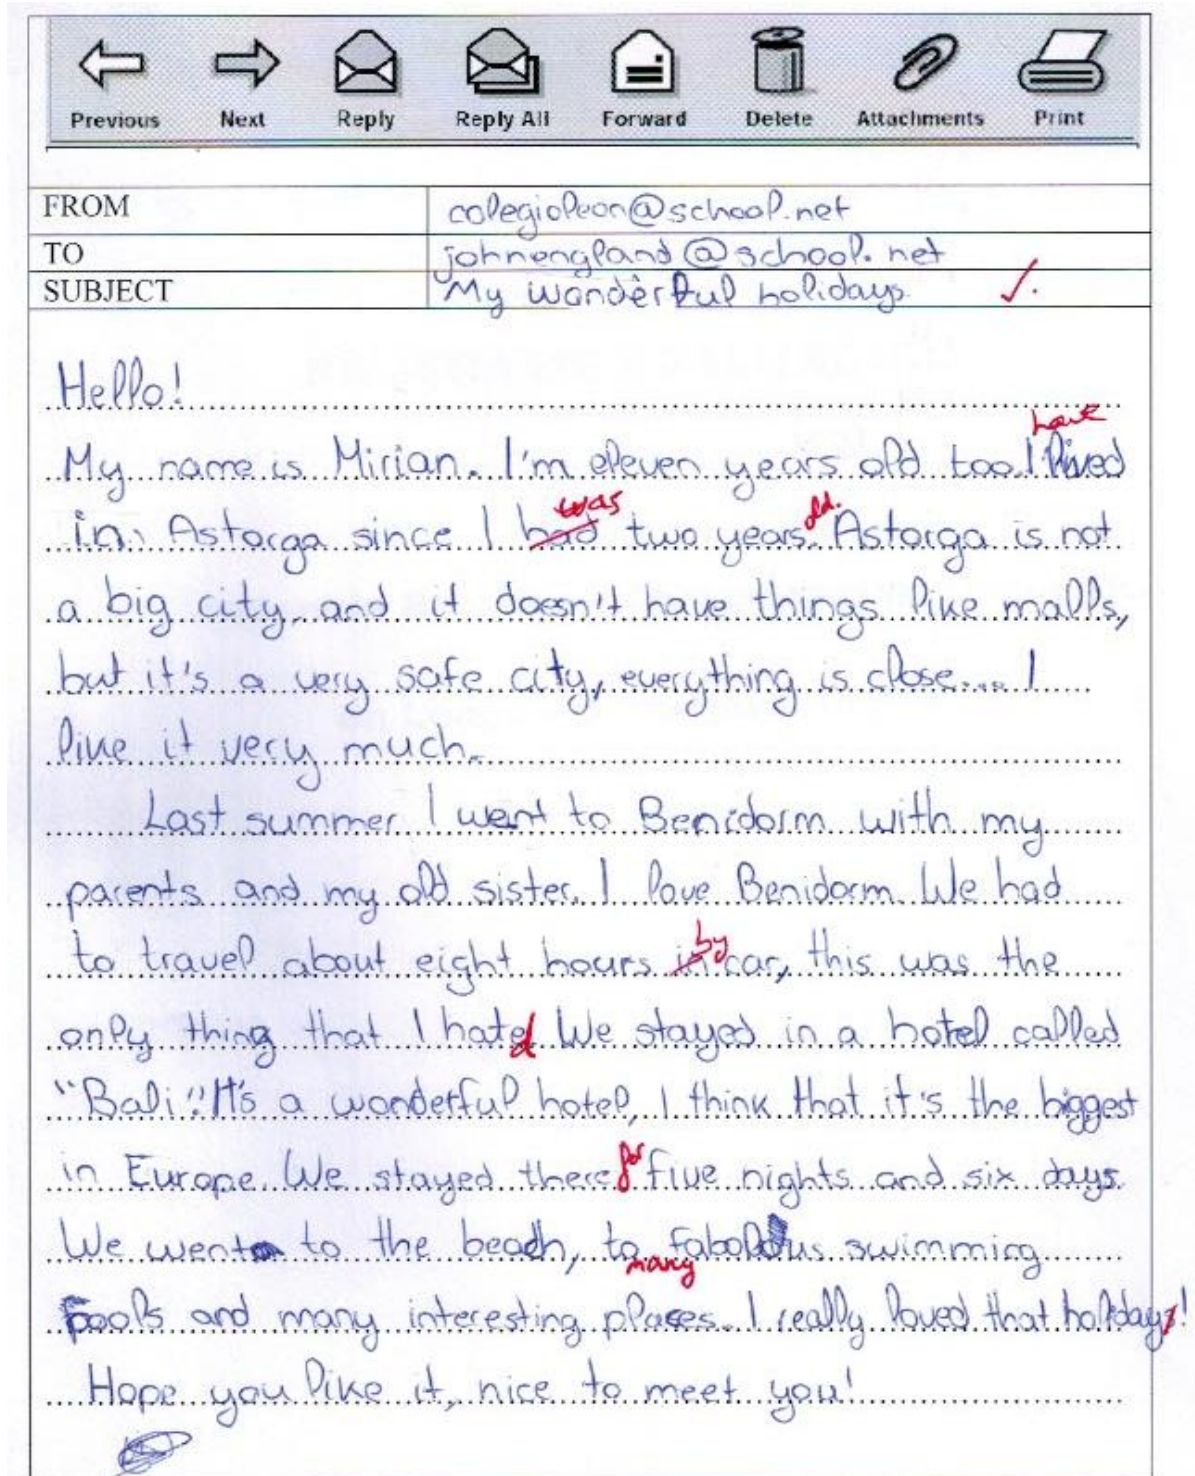 Previous Next Reply Reply All Forward Delete Attachments Print
FROM colegioleon@school.net
TO johnengland@school.net
SUBJECT My wonderful holidays ✓.
Hello!
have
My name is Mirian. I'm eleven years old too. I lived
was old.
in Astorga since I had two years. Astorga is not
a big city, and it doesn't have things like malls,
but it's a very safe city, everything is close.... I
like it very much.
Last summer I went to Benidorm with my
parents and my old sister. I love Benidorm. We had
by
to travel about eight hours in car, this was the
only thing that I hated We stayed in a hotel called
"Bali". It's a wonderful hotel, I think that it's the biggest
for
in Europe. We stayed there five nights and six days.
We went to the beach, to fabolous swimming
many
pools and many interesting places. I really loved that holidays!
Hope you like it, nice to meet you!